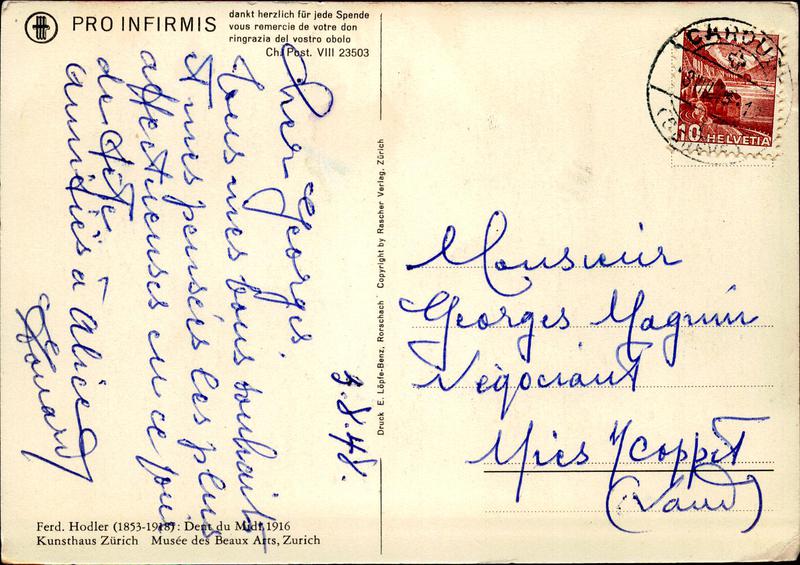 PRO INFIRMIS
dankt herzlich für jede Spende
vous remercie de votre don
ringrazia del vostro obolo
Ch. Post. VIII 23503
Cher Georges.
Tous mes bons souhaits
et mes pensées les plus
affectueuses en ce jour
de fête
amitiés à Alice
Edouard
3.8.48.
Druck E. Löpfe-Benz, Rorschach Copyright by Rascher Verlag, Zürich
10 HELVETIA
Monsieur
Georges Magnin
Négociant
Mies s/Coppet
(Vaud)
Ferd. Hodler (1853-1918): Dent du Midi 1916
Kunsthaus Zürich Musée des Beaux Arts, Zurich